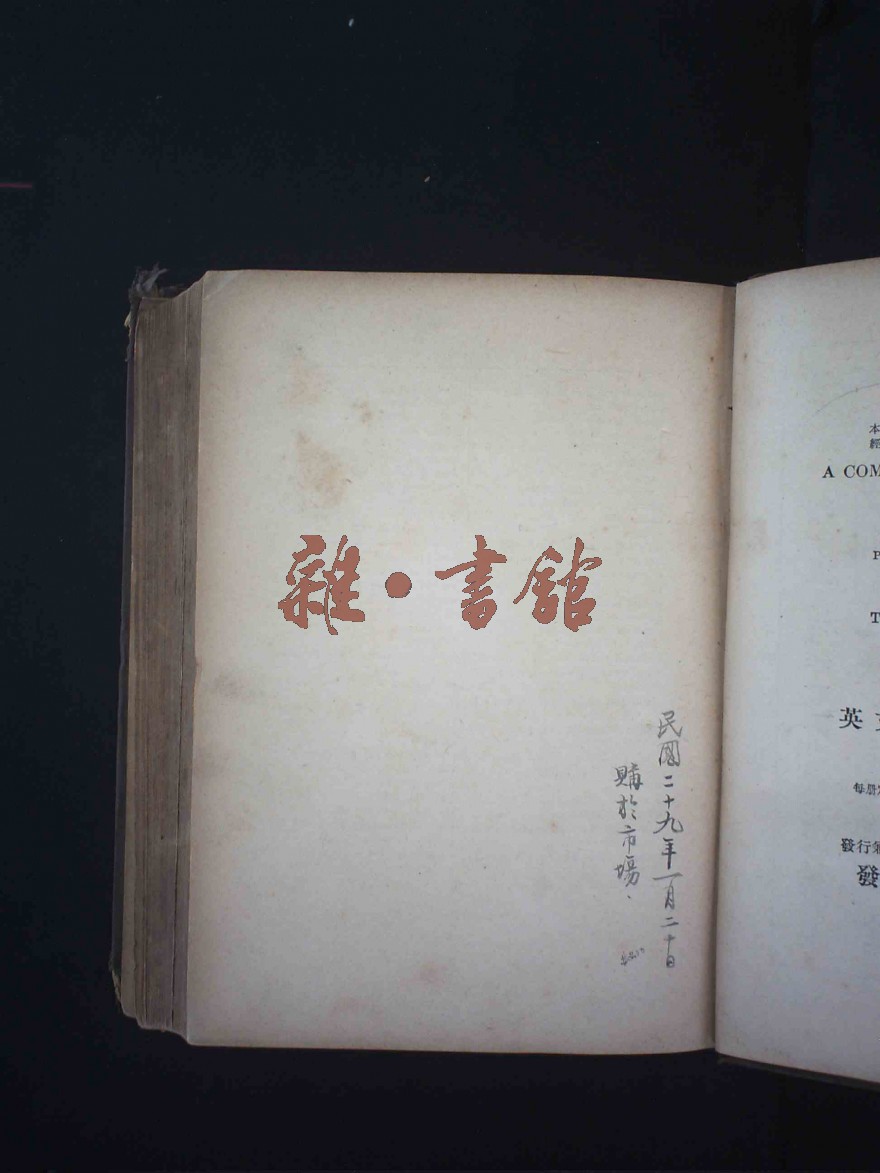 雜•書館
民國二十九年一月二十日
購於市場、
本
經
A COM
P
T
英
每册
發行
發